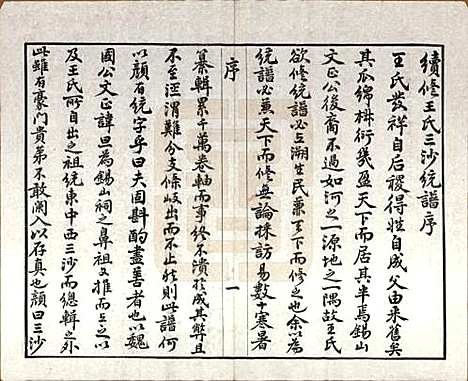 續修王氏三沙統譜序
王氏發祥自后稷得姓自成父由來舊矣
其瓜綿椒衍幾盈天下而居其半焉錫山
文正公後裔不過如河之一源地之一隅故王氏
欲修統譜必上溯生民兼
天下而修之也余謂
統譜必兼天下而修無論採訪易數十寒暑
序
一
纂輯累千萬卷軸而事終不潰於成其弊且
不至涇渭難分支條岐出而不止然則此譜何
以顏石統字乎曰夫固斟酌盡善者也以魏
國公文正諱旦為錫山祠之鼻祖又推而上之以
及王氏所自出之祖統東中西三沙而總輯之外
此雖有豪門貴第不敢闌入以存真也顏曰三沙